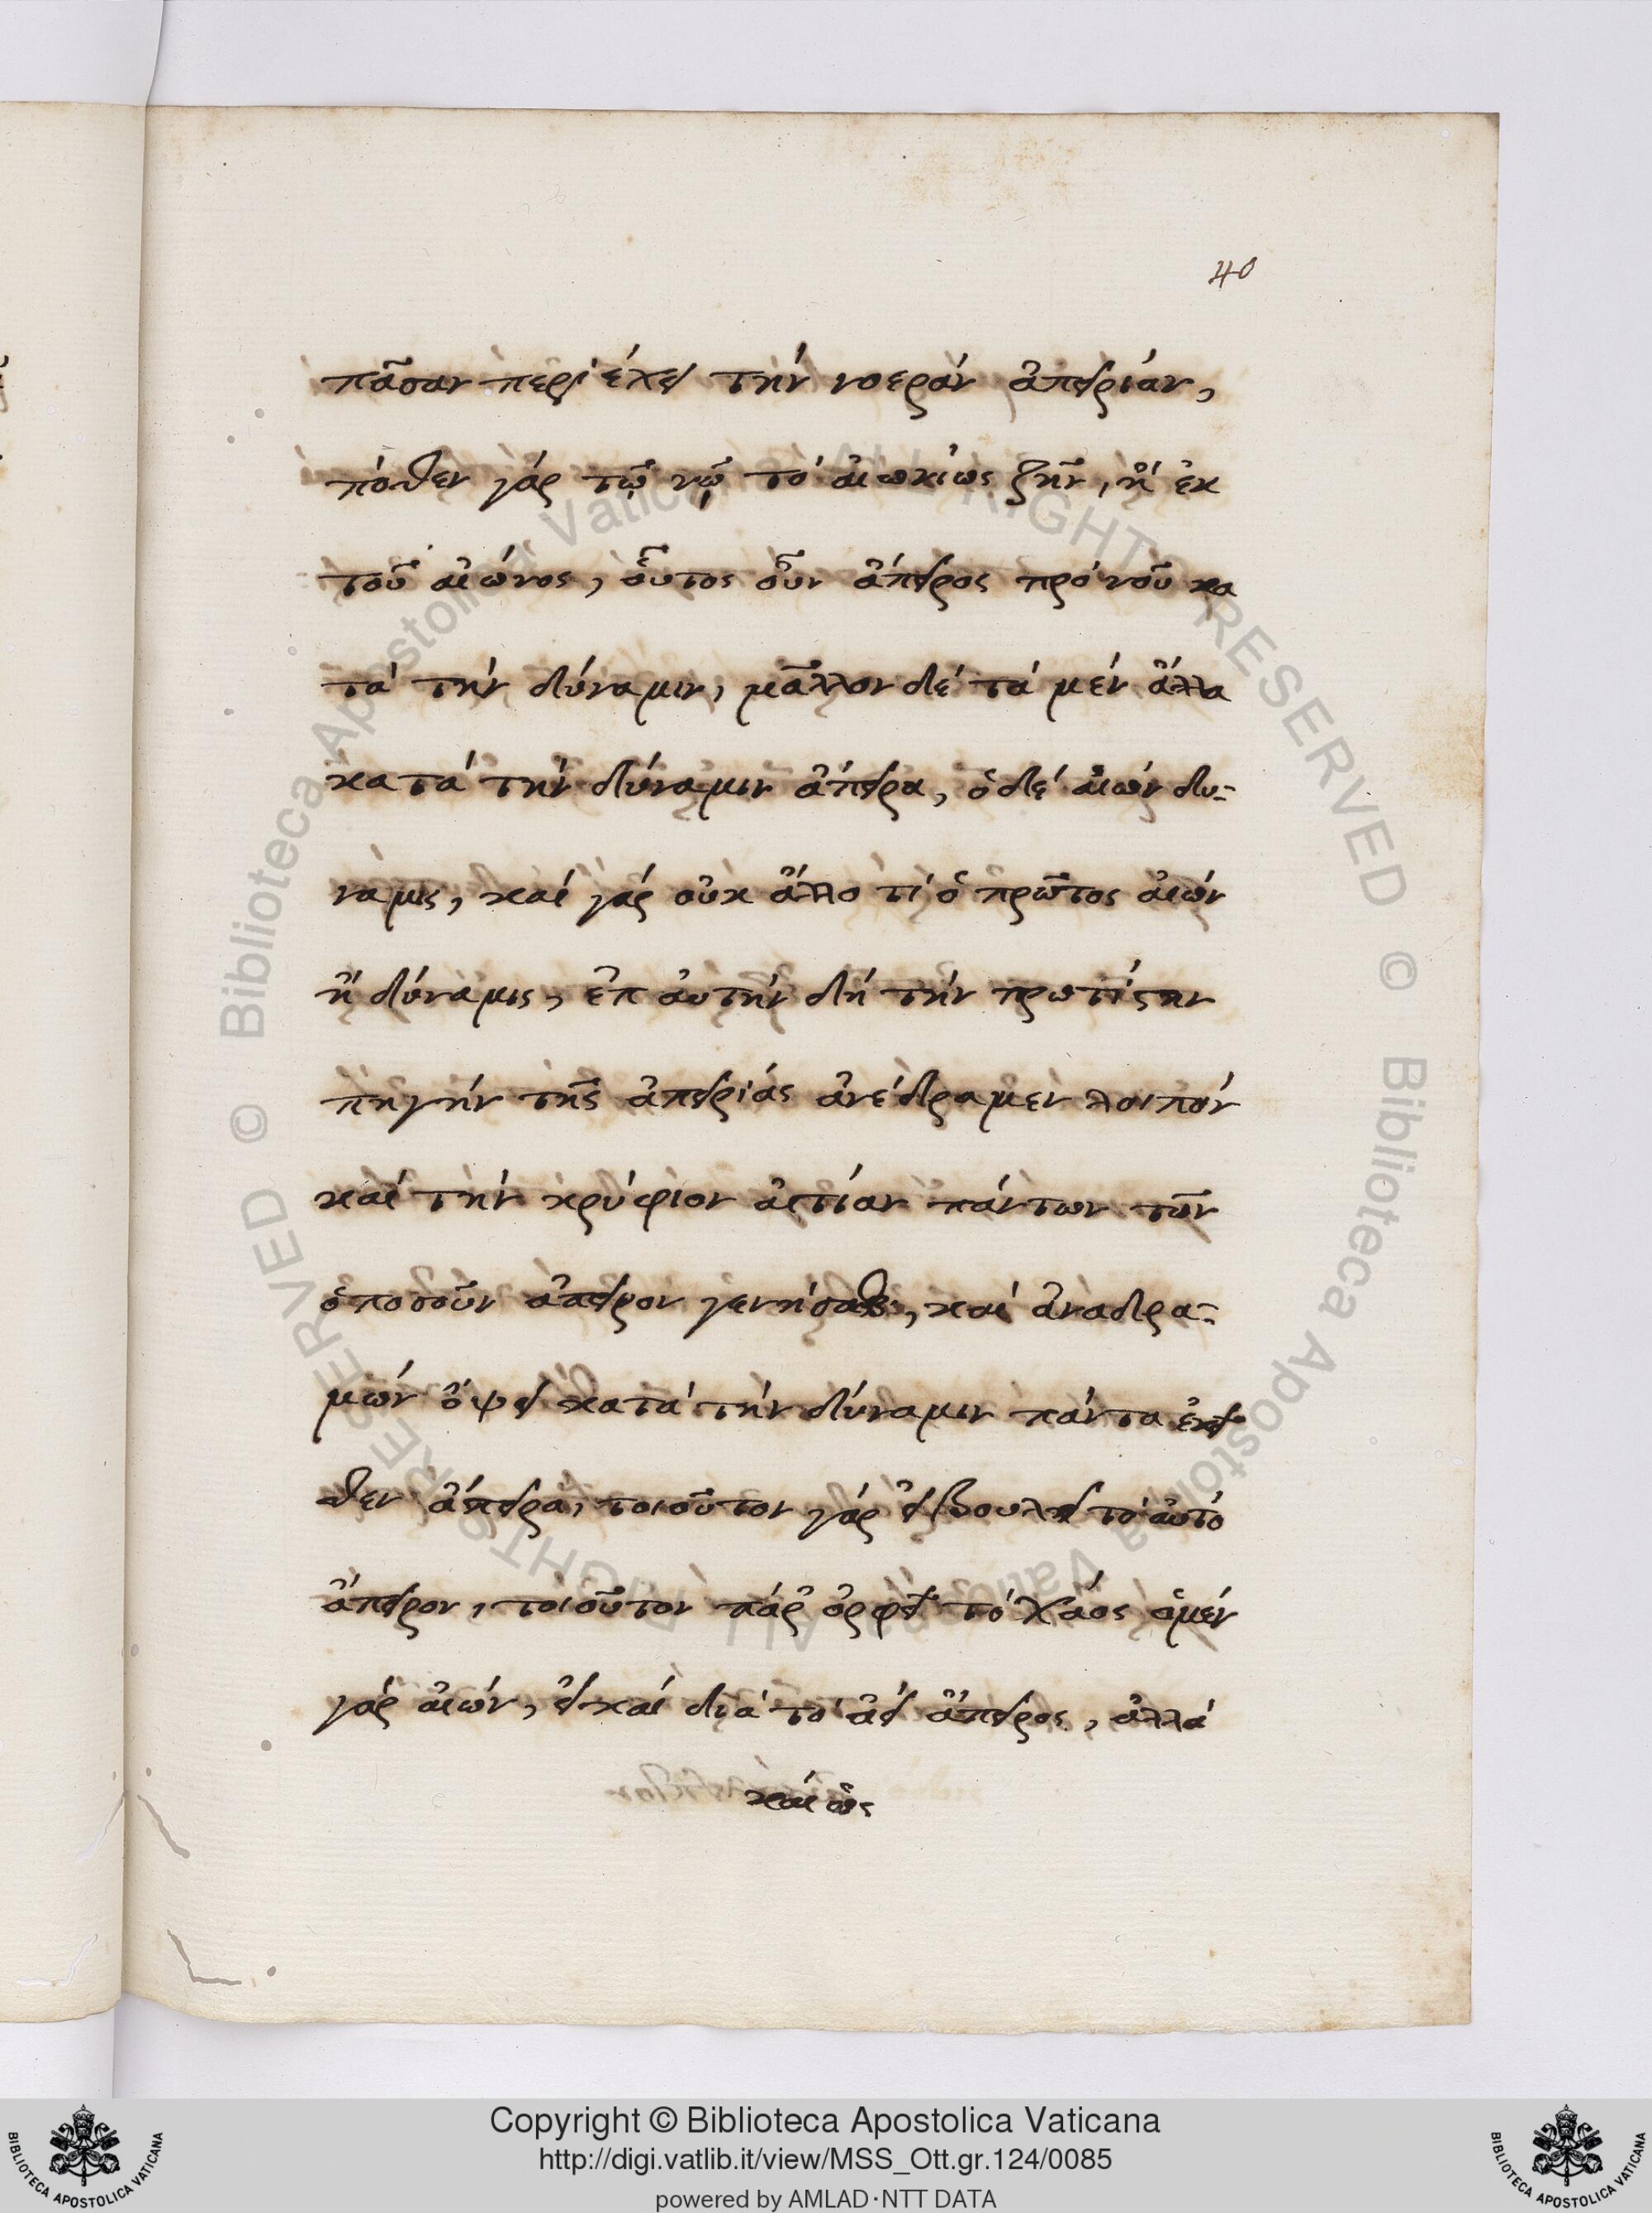 40
πᾶσαν περιέχει τὴν νοερὰν ἀπειρίαν,
πόθεν γὰρ τῷ νῷ τὸ αἰωνίως ζῆν, ἢ ἐκ
τοῦ αἰώνος, οὗτος οὖν ἄπειρος πρὸ νοῦ κα
τὰ τὴν δύναμιν, μᾶλλον δὲ τὰ μὲν ἄλλα
κατὰ τὴν δύναμιν ἄπειρα, ὁ δὲ αἰὼν δύ-
ναμις, καὶ γὰρ οὐκ ἄλλο τί ὁ πρῶτος αἰὼν
ἢ δύναμις, ἐπ αὐτὴν δὴ τὴν πρωτίστην
πηγὴν τῆς ἀπειρίας ἀνέδραμεν λοιπὸν
καὶ τὴν κρύφιον αἰτίαν πάντων τῶν
ὁποσοῦν ἄπειρον γεννήσασαν, καὶ ἀναδρα-
μὼν ὄψει κατὰ τὴν δύναμιν πάντα ἐκεῖ
θεν ἄπειρα, τοιοῦτον γὰρ εἰ βούλει τὸ αὐτὸ
ἄπειρον, τοιοῦτον παρ ὀρφεῖ τὸ Χάος ὁ μὲν
γὰρ αἰὼν, εἰ καὶ διὰ τὸ ἀεὶ ἄπειρος, ἀλλὰ
καὶ ὡς
Copyright © Biblioteca Apostolica Vaticana
http://digi.vatlib.it/view/MSS_Ott.gr.124/0085
powered by AMLAD·NTT DATA
© Biblioteca Apostolica Vaticana ALL RIGHTS RESERVED
© Biblioteca Apostolica Vaticana ALL RIGHTS RESERVED
BIBLIOTECA APOSTOLICA VATICANA
BIBLIOTECA APOSTOLICA VATICANA